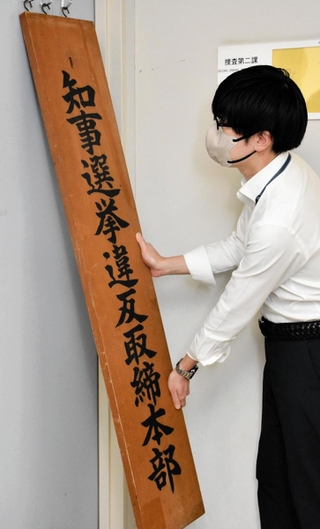 捜査第二課
知事選挙違反取締本部